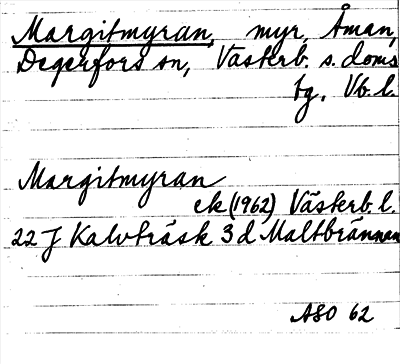 Margitmyran, myr, Åman,
Degerfors sn, Västerb. s. doms
bg, Vb. l.
Margitmyran
ek (1962) Västerb. l.
22 J Kalvträsk 3 d Maltbrännan
ASO 62